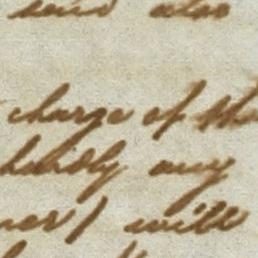 said also
charge of the
hardly any
ner) will